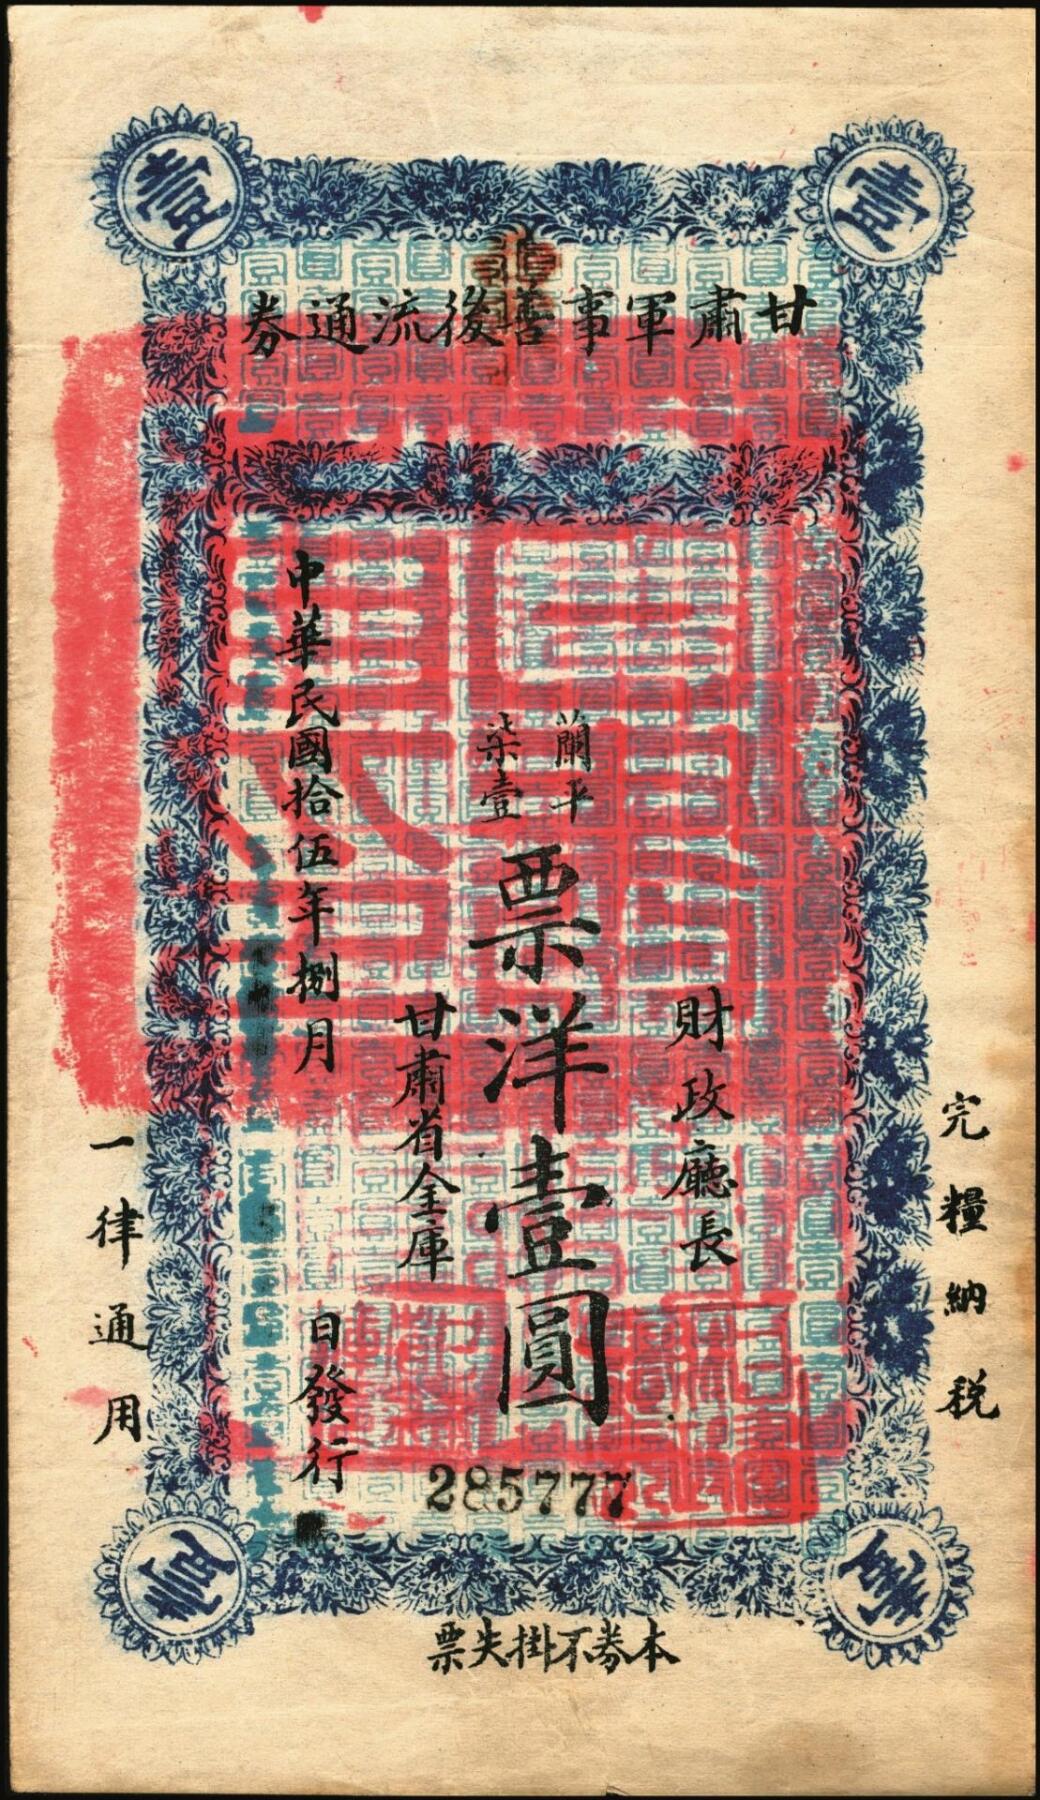 甘肅軍事善後流通券
完糧納税
財政廳長
蘭平
柒壹
票洋壹圓
甘肅省金庫
中華民國拾伍年捌月
日發行
一律通用
285777
本券不掛失票
壹
壹
壹
壹